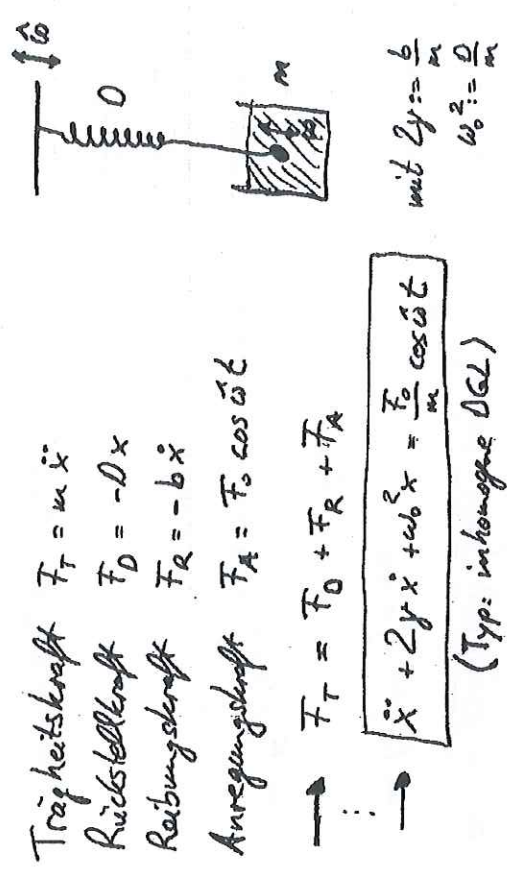 Trägheitskraft F_T = m ẍ
Rückstellkraft F_D = -Dx
Reibungskraft F_R = -b ẋ
Anregungskraft F_A = F_0 cos ω̂ t
→ F_T = F_D + F_R + F_A
⋮
→ ẍ + 2γ ẋ + ω_0² x = F_0/m cos ω̂ t
(Typ: inhomogene DGL)
ω̂
D
m
mit 2γ := b/m
ω_0² := D/m